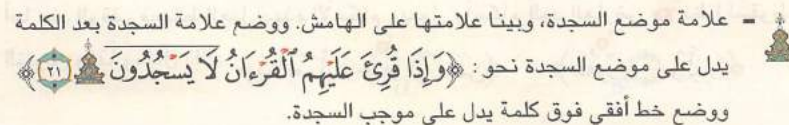 - علامة موضع السجدة، وبينا علامتها على الهامش. ووضع علامة السجدة بعد الكلمة
يدل على موضع السجدة نحو: ﴿وَإِذَا قُرِئَ عَلَيْهِمُ ٱلْقُرْءَانُ لَا يَسْجُدُونَ ۩ ٢١﴾
ووضع خط أفقي فوق كلمة يدل على موجب السجدة.